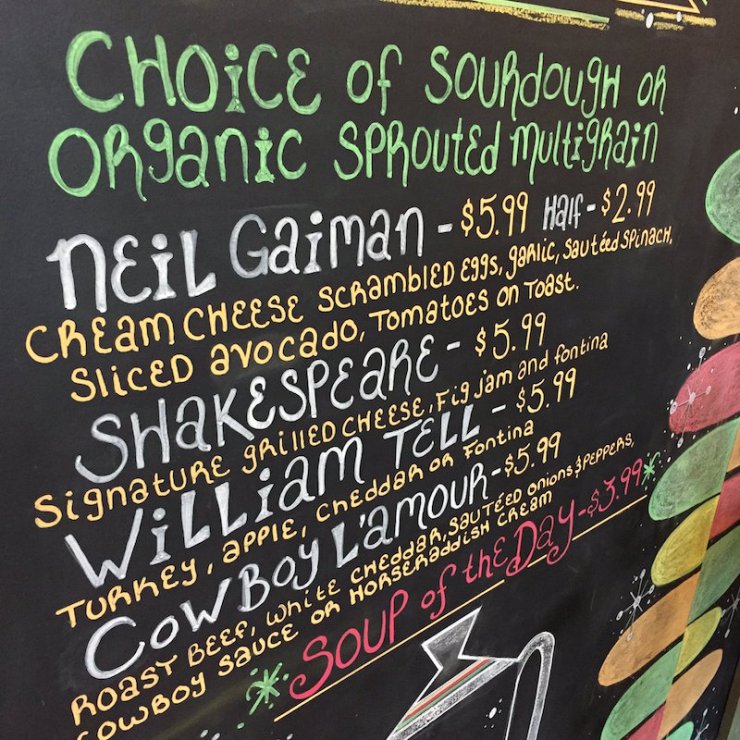 CHOiCE of SOURdOUgH OR
ORganic SPROUtEd multigRain
NEiL Gaiman - $5.99 Half - $2.99
CREam CHEESE SCRAmbLED Eggs, gaRlic, Sautéed SPinach,
SliCED avocado, Tomatoes on Toast.
SHaKESPEaRE - $5.99
Signature gRillED CHEESE, Fig jam and fontina
WiLLiam TELL - $5.99
TURKEY, aPPLE, CHEddaR OR Fontina
COWBOY L'amOUR - $5.99
ROaST BEEF, WHite CHEddaR, SAUTÉED Onions & PEPPERS,
COWBOY SaUCE OR HORSERaddiSH CREam
* SOUP of thE Day - $3.99 *